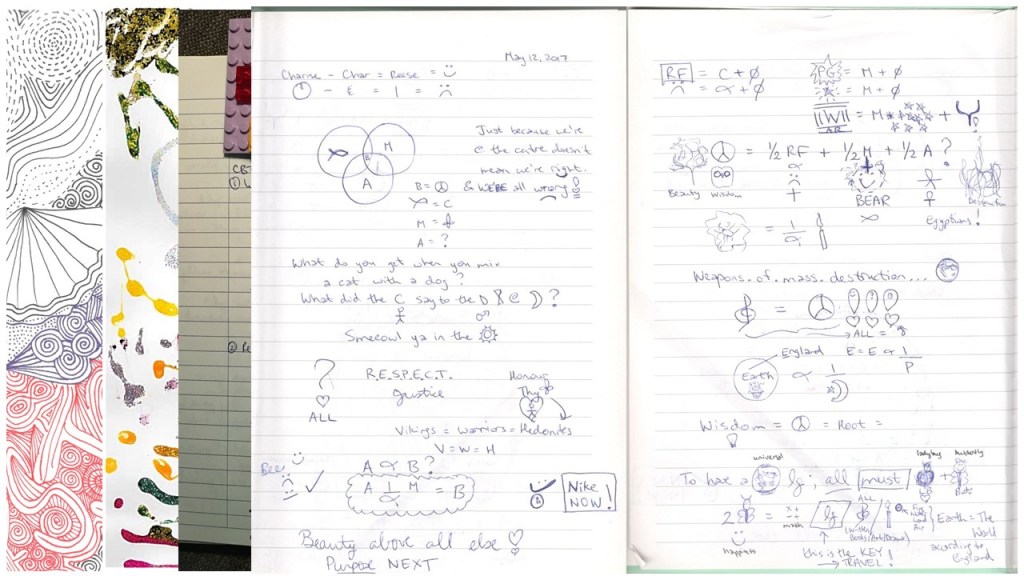 CB
①
②
May 12, 2017
Charise - Char = Rase =
- E = 1 =
M
A
B
Just because we're
@ the centre doesn't
mean we're right.
& WE'RE all wrong!
B =
= C
M =
A = ?
What do you get when you mix
a cat with a dog?
What did the C say to the D & @ ?
ya in the
?
R.E.S.P.E.C.T.
Justice
Honour
Thy
ALL
Vikings = Warriors = Hedonites
V = W = H
Bee
A ∝ B?
A 1/∝ M = B
Nike
NOW!
Beauty above all else
Purpose NEXT
RF = C + Ø
= ∝ + Ø
PG = M + Ø
= M + Ø
IIWII = M +
= 1/2 RF + 1/2 M + 1/2 A ?
Beauty Wisdom
BEAR
Egyptians!
Destruction
= 1/∝
Weapons.of.mass.destruction...
=
ALL =
England
E = E ∝ 1/P
Earth ∝ 1/
Wisdom = = Root =
universal
ladybug
Butterfly
To have a , all must +
ALL
2 =
happiness
this is the KEY!
→ TRAVEL!
Earth = The
World
according to
England